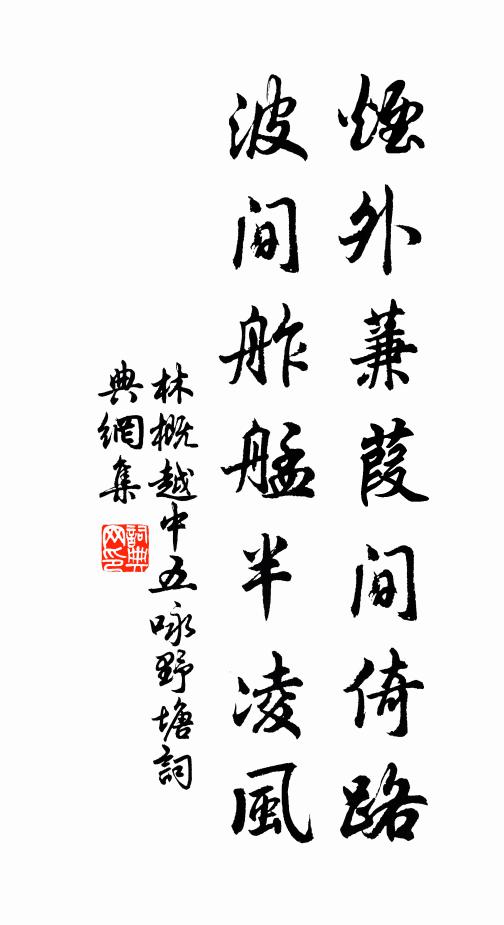 煙外蒹葭間倚路
波間舴艋半凌風
林概越中五咏野塘詞
典網集
詞典網印